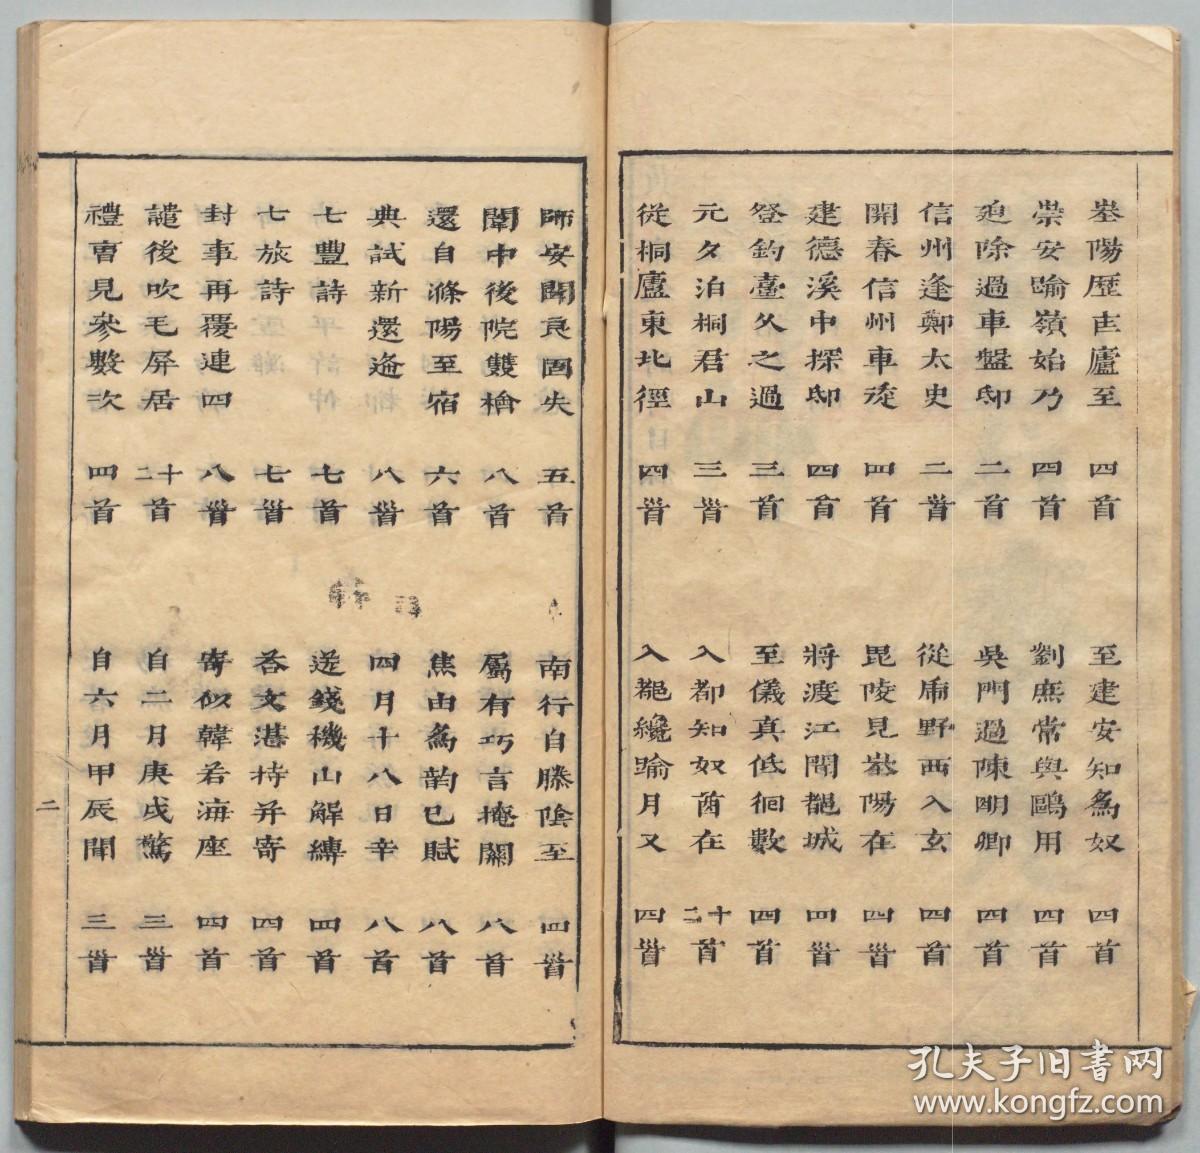 崟陽歷吉廬至 四首 至建安知為奴 四首
崇安踰嶺始乃 四首 劉庶常與鷗用 四首
迫除過車盤邸 二首 吳門過陳明卿 四首
信州逢鄭太史 二首 從甫野西入玄 四首
開春信州車 四首 毘陵見崟陽在 四首
建德溪中探邸 四首 將渡江聞 城 四首
登釣臺久之過 三首 至儀真低徊數 四首
元夕泊桐君山 三首 入都知奴酋在 十二首
從桐廬東北徑 四首 入 纔踰月又 四首
師安關良固失 五首 南行自滕陰至 四首
闈中後院雙檜 八首 屬有巧言掩關 八首
還自滁陽至宿 六首 焦由為韵已賦 八首
典試新還逢 八首 四月十八日辛 八首
七豐詩 七首 送錢機山解縳 四首
七旅詩 七首 答文湛持并寄 四首
封事再覆連四 八首 寄似韓若海座 四首
譴後吹毛屏居 十二首 自二月庚戌驚 三首
禮曹見參數次 四首 自六月甲辰聞 三首
二
孔夫子旧书网
www.kongfz.com